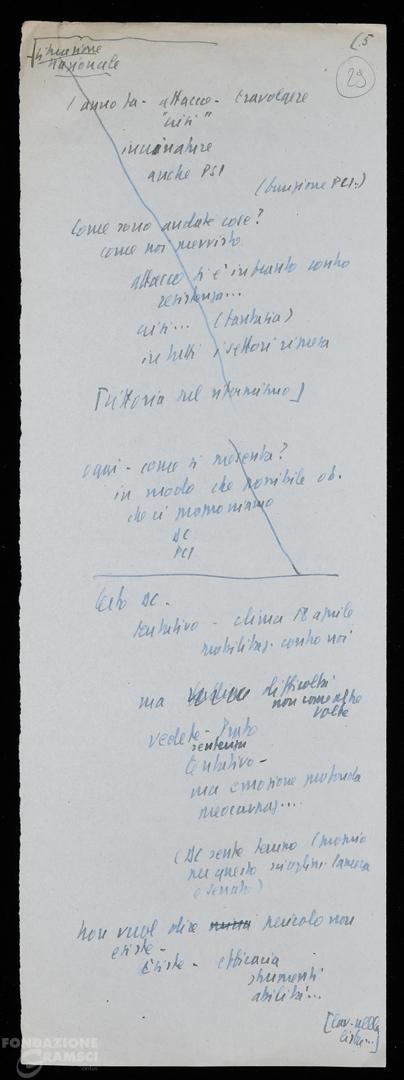 (5
29
Situazione
nazionale
1 anno fa - attacco - travolgere
"crisi"
incrinature
anche PSI
(funzione PCI.)
Come sono andate cose?
come noi previsto
attacco si è infranto contro
resistenza...
crisi... (fantasia)
in tutti i settori ripresa
[Vittoria nel
oggi - come si presenta?
in modo che possibile ob.
che ci proponiamo
DC
PCI
Certo DC -
tentativo - clima 18 aprile
mobilitaz. contro noi
ma difficoltà
non come altre
volte
vedete - Prato
sentenza
tentativo -
ma emozione profonda
preoccupaz....
(DC sente terreno (proprio
per questo scioglim. Camera
e Senato)
non vuol dire pericolo non
esiste -
Esiste - efficacia
strumenti
abilità...
[lav. nelle
liste...]
FONDAZIONE
GRAMSCI
onlus